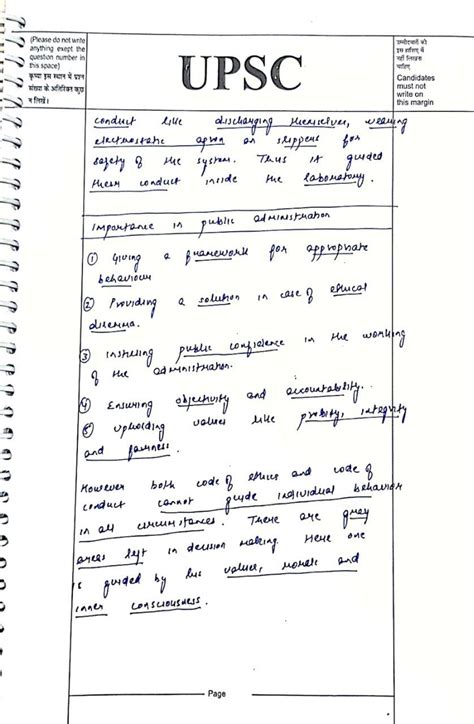 (Please do not write
anything exept the
question number in
this space)
कृप्या इस स्थान में प्रश्न
संख्या के अतिरिक्त कुछ
न लिखें।
UPSC
उम्मीदवारों को
इस हाशिए में
नहीं लिखना
चाहिए
Candidates
must not
write on
this margin
conduct like discharging themselves, wearing
electrostatic apron or slippers for
safety of the system. Thus it guided
them conduct inside the laboratory.
Importance in public administration
① Giving a framework for appropriate
behaviour
② Providing a solution in case of ethical
dilemma.
③ Instilling public confidence in the working
of the administration.
④ Ensuring objectivity and accountability.
⑤ Upholding values like probity, integrity
and fairness.
However both code of ethics and code of
conduct cannot guide individual behavior
in all circumstances. There are grey
areas left in decision making. Here one
is guided by his values, morals and
inner consciousness.
Page